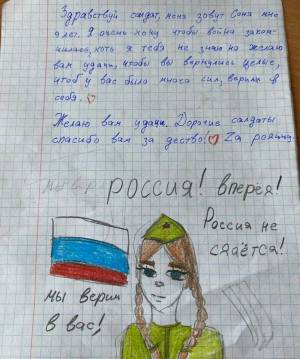 Здравствуй солдат, меня зовут Соня мне
9 лет. Я очень хочу чтобы война закон-
чилась, хоть я тебя не знаю но желаю
вам удачи, чтобы вы вернулись целые,
чтоб у вас было много сил, верили в
себя.
Желаю вам удачи. Дорогие солдаты
спасибо вам за дество! Zа родину
РОССИЯ! вперёд!
Россия не
сдаётся!
мы верим
в вас!